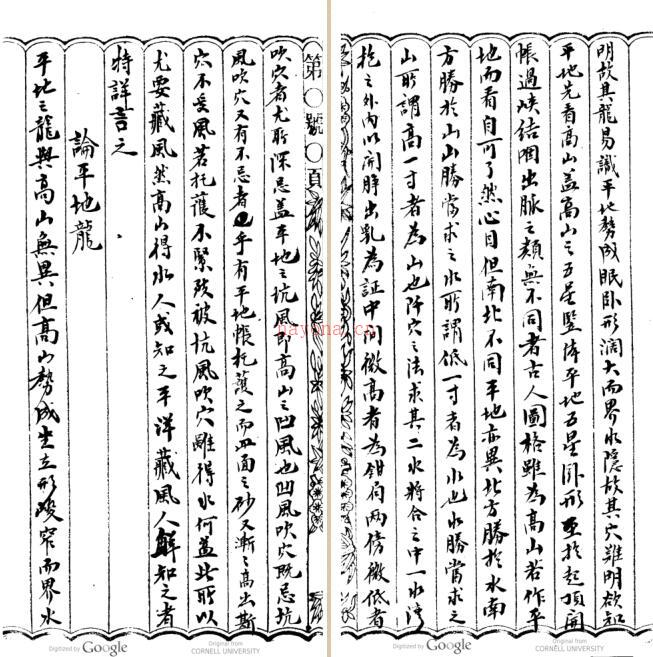 第〇號〇頁
吹穴者尤所深忌盖平地之坑風即高山之凹風也凹風吹穴既忌坑
風吹穴又有不忌者乎有平地帳托護之而四面之砂又漸〻高出斯
穴不受風若托護不緊致被坑風吹穴雖得水何益此所以
尤要藏風然高山得水人或知之平洋藏風人鮮知之者
特詳言之
論平地龍
平地之龍與高山無異但高山勢成生立形峻窄而界水
明故其龍易識平地勢成眠臥形濶大而界水隱故其穴難明欲知
平地先看高山盖高山之五星豎体平地五星臥形至於起頂開
帳過峽結咽出脈之類無不同者古人圖格雖為高山若作平
地而看自可了然心目但南北不同平地亦異北方勝於水南
方勝於山山勝當求之水所謂低一寸者為水也水勝當求之
山所謂高一寸者為山也阡穴之法求其二水將合之中一水灣
抱之外內以開睜出乳為証中間微高者為鉗局兩傍微低者
Digitized by Google
Original from
CORNELL UNIVERSITY
Digitized by Google
Original from
CORNELL UNIVERSITY